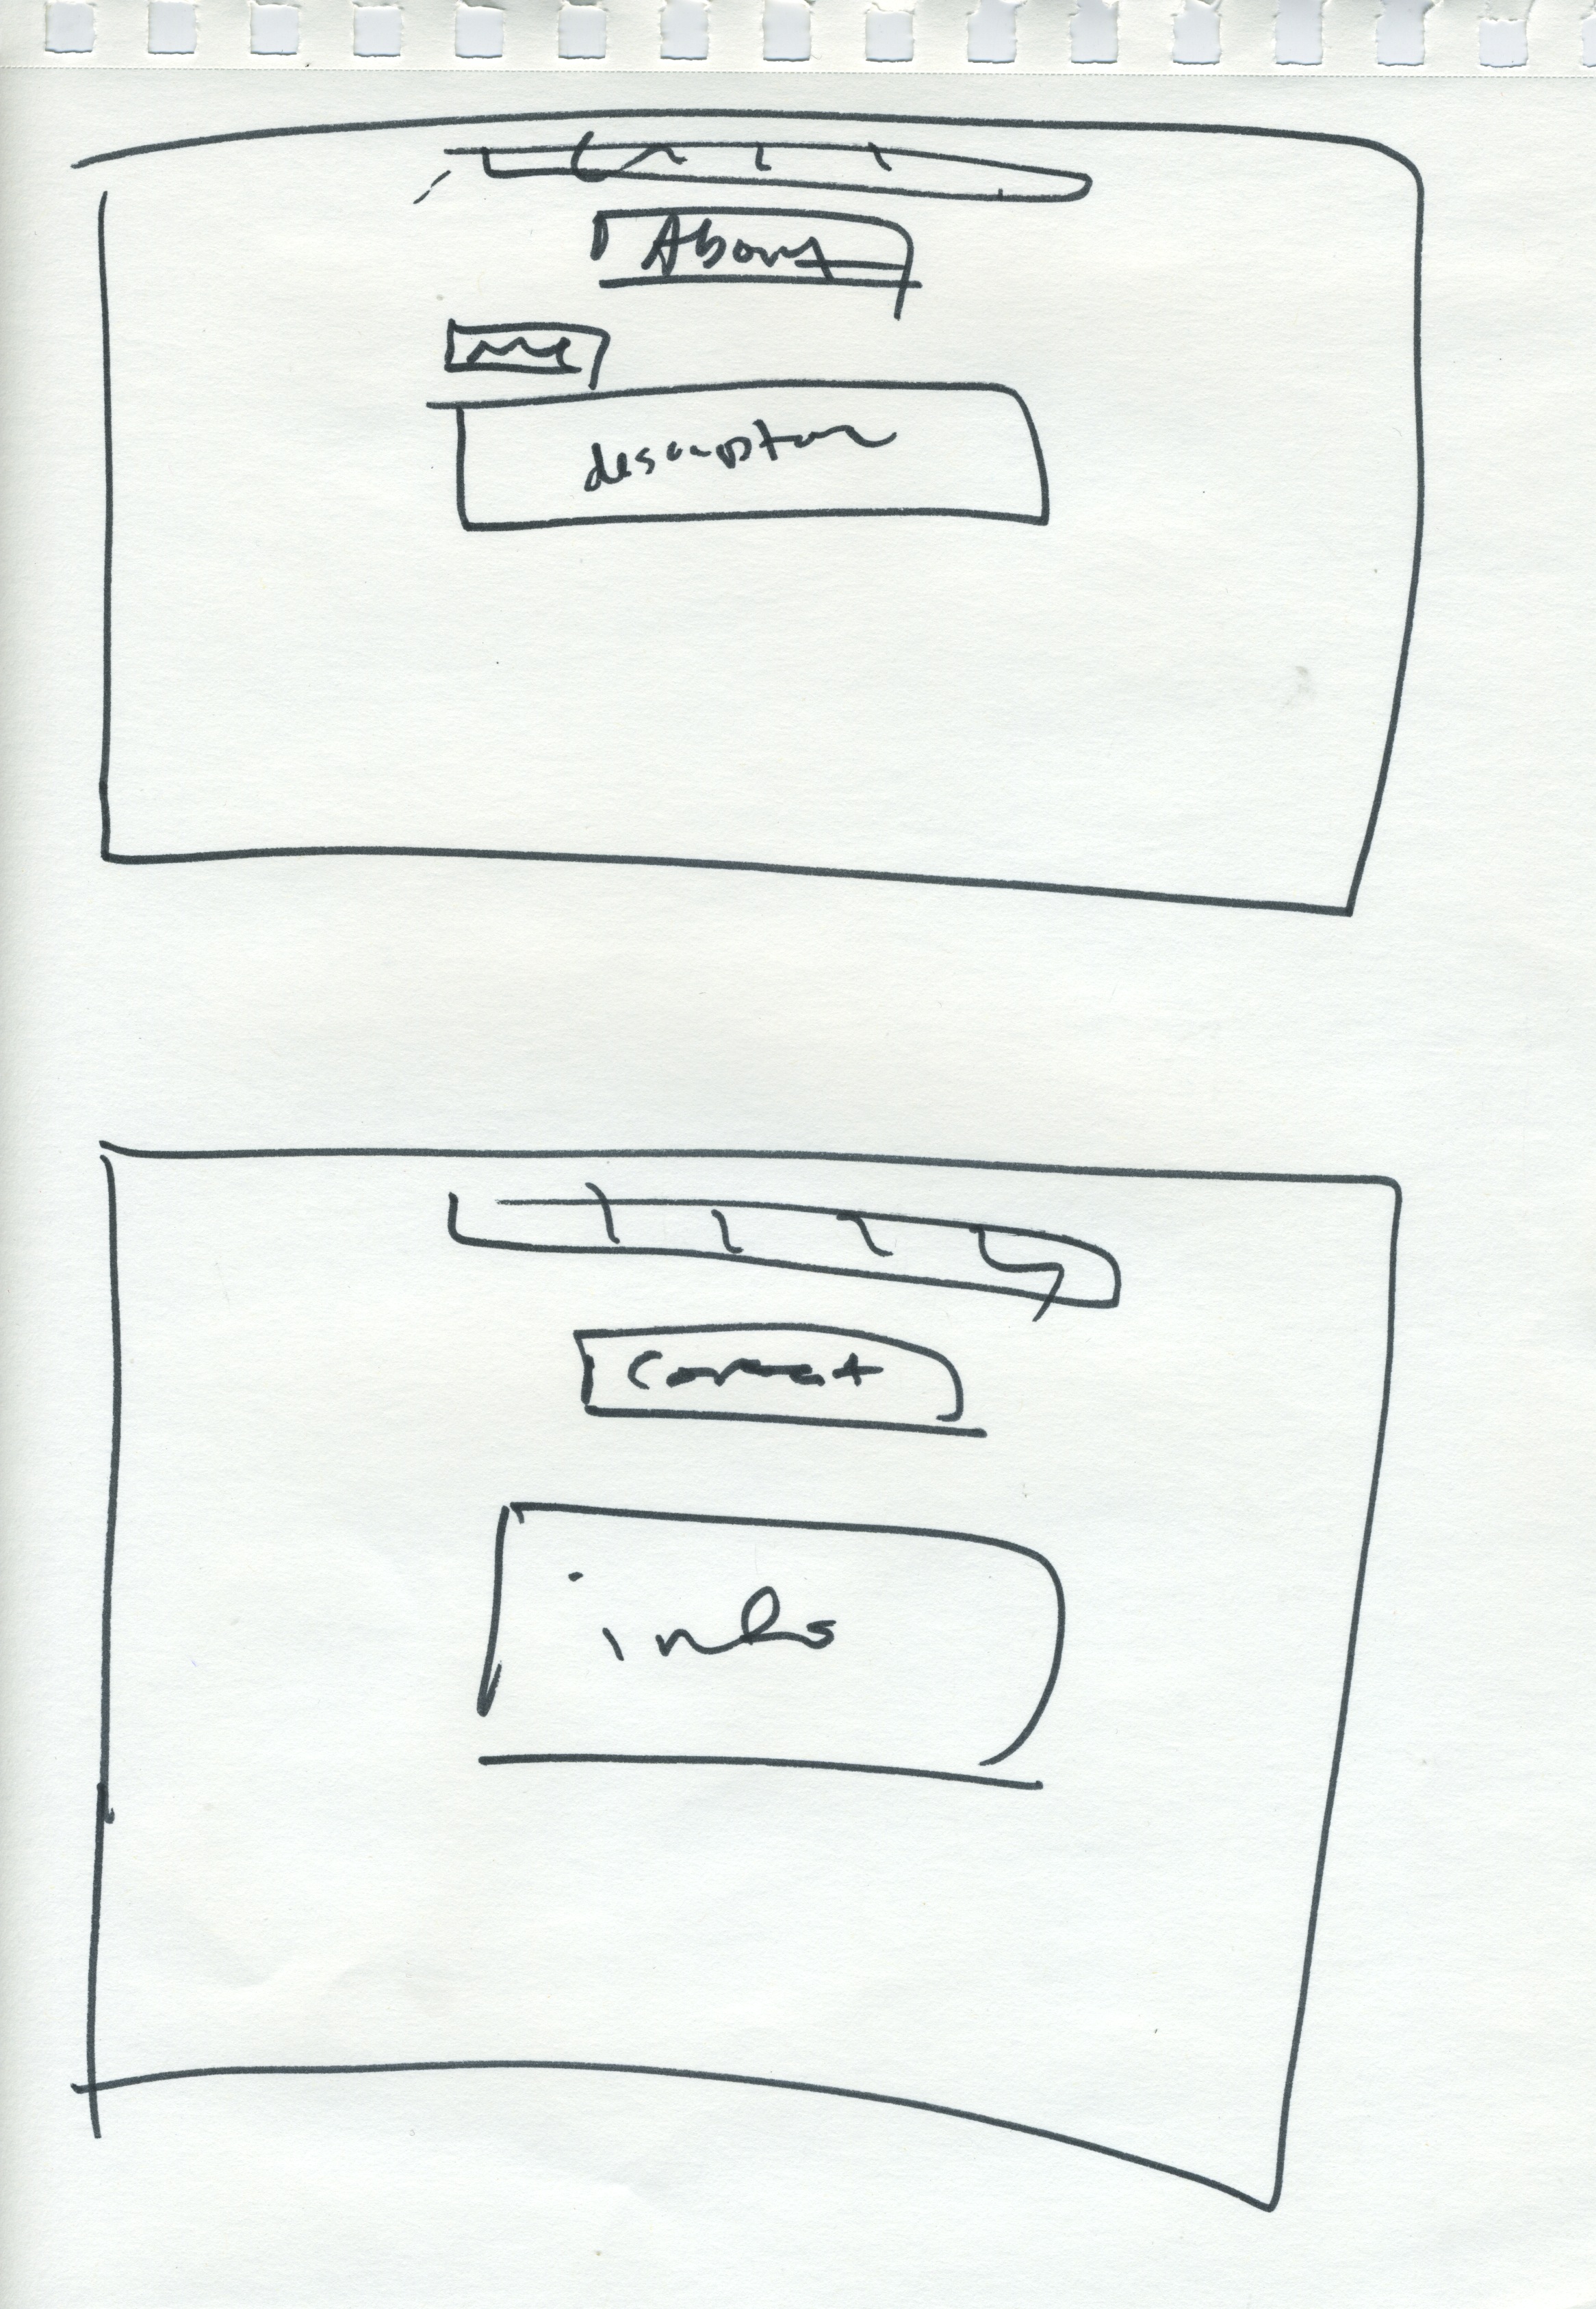 About
me
description
Contact
info